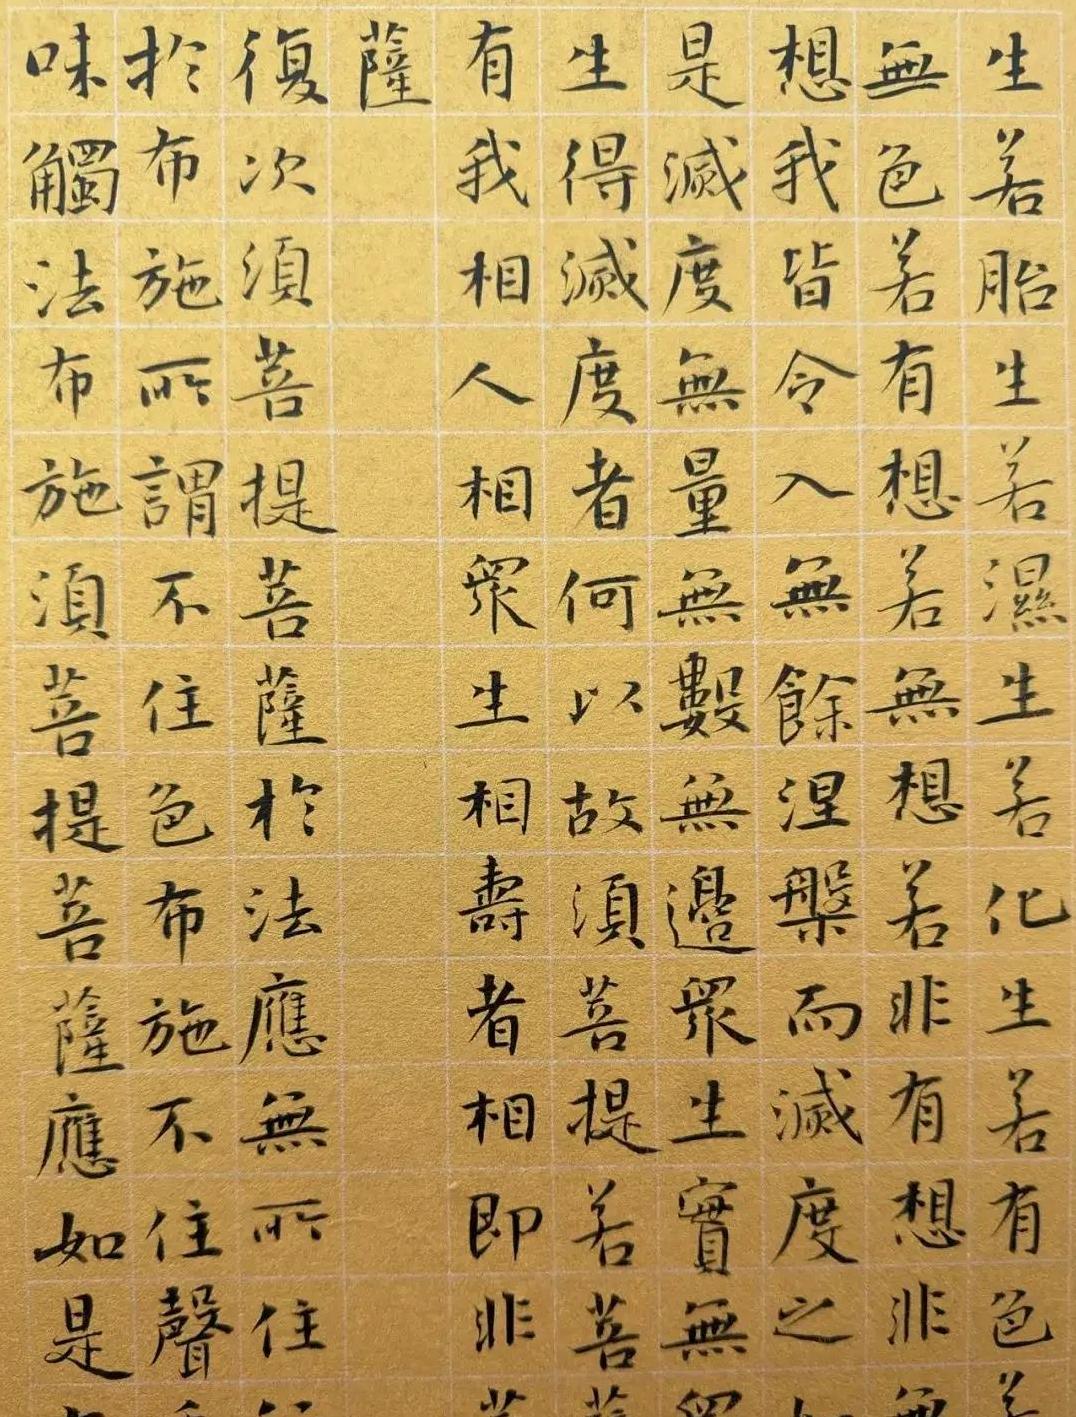 生若胎生若濕生若化生若有色
無色若有想若無想若非有想非
想我皆令入無餘涅槃而滅度之
是滅度無量無數無邊眾生實無
生得滅度者何以故須菩提若菩
有我相人相眾生相壽者相即非
薩
復次須菩提菩薩於法應無所住
於布施所謂不住色布施不住聲
味觸法布施須菩提菩薩應如是